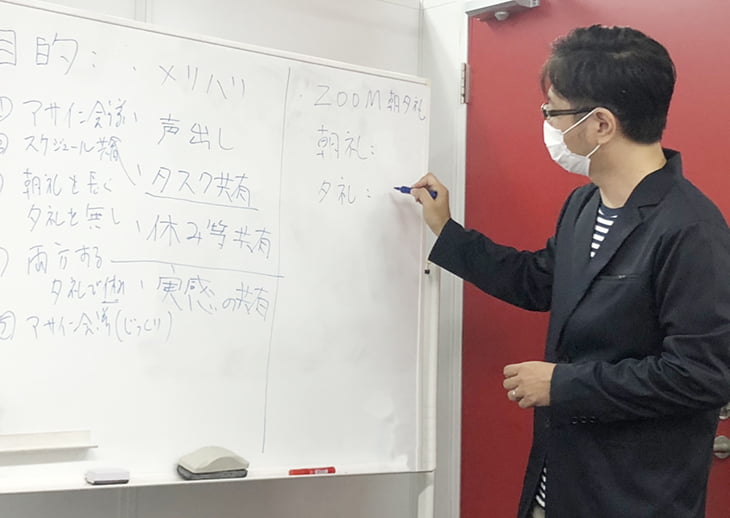 目的:
メリハリ
① アサイン会議
声出し
② スケジュール共有
タスク共有
朝礼を長く
夕礼を無し
休み等共有
両方する
夕礼で
実感の共有
⑤ アサイン会議(じっくり)
ZOOM朝夕礼
朝礼:
夕礼: